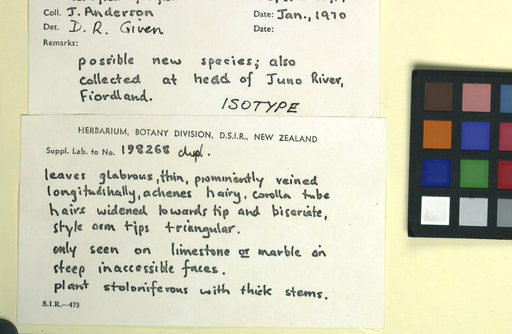 Coll. J. Anderson Date: Jan., 1970
Det. D. R. Given Date:
Remarks:
possible new species; also
collected at head of Juno River,
Fiordland.
ISOTYPE
HERBARIUM, BOTANY DIVISION, D.S.I.R., NEW ZEALAND
Suppl. Lab. to No. 198268 dupl.
leaves glabrous, thin, prominently veined
longitudinally, achenes hairy, corolla tube
hairs widened towards tip and biseriate,
style arm tips triangular.
only seen on limestone or marble on
steep inaccessible faces.
plant stoloniferous with thick stems.
S.I.R.—473